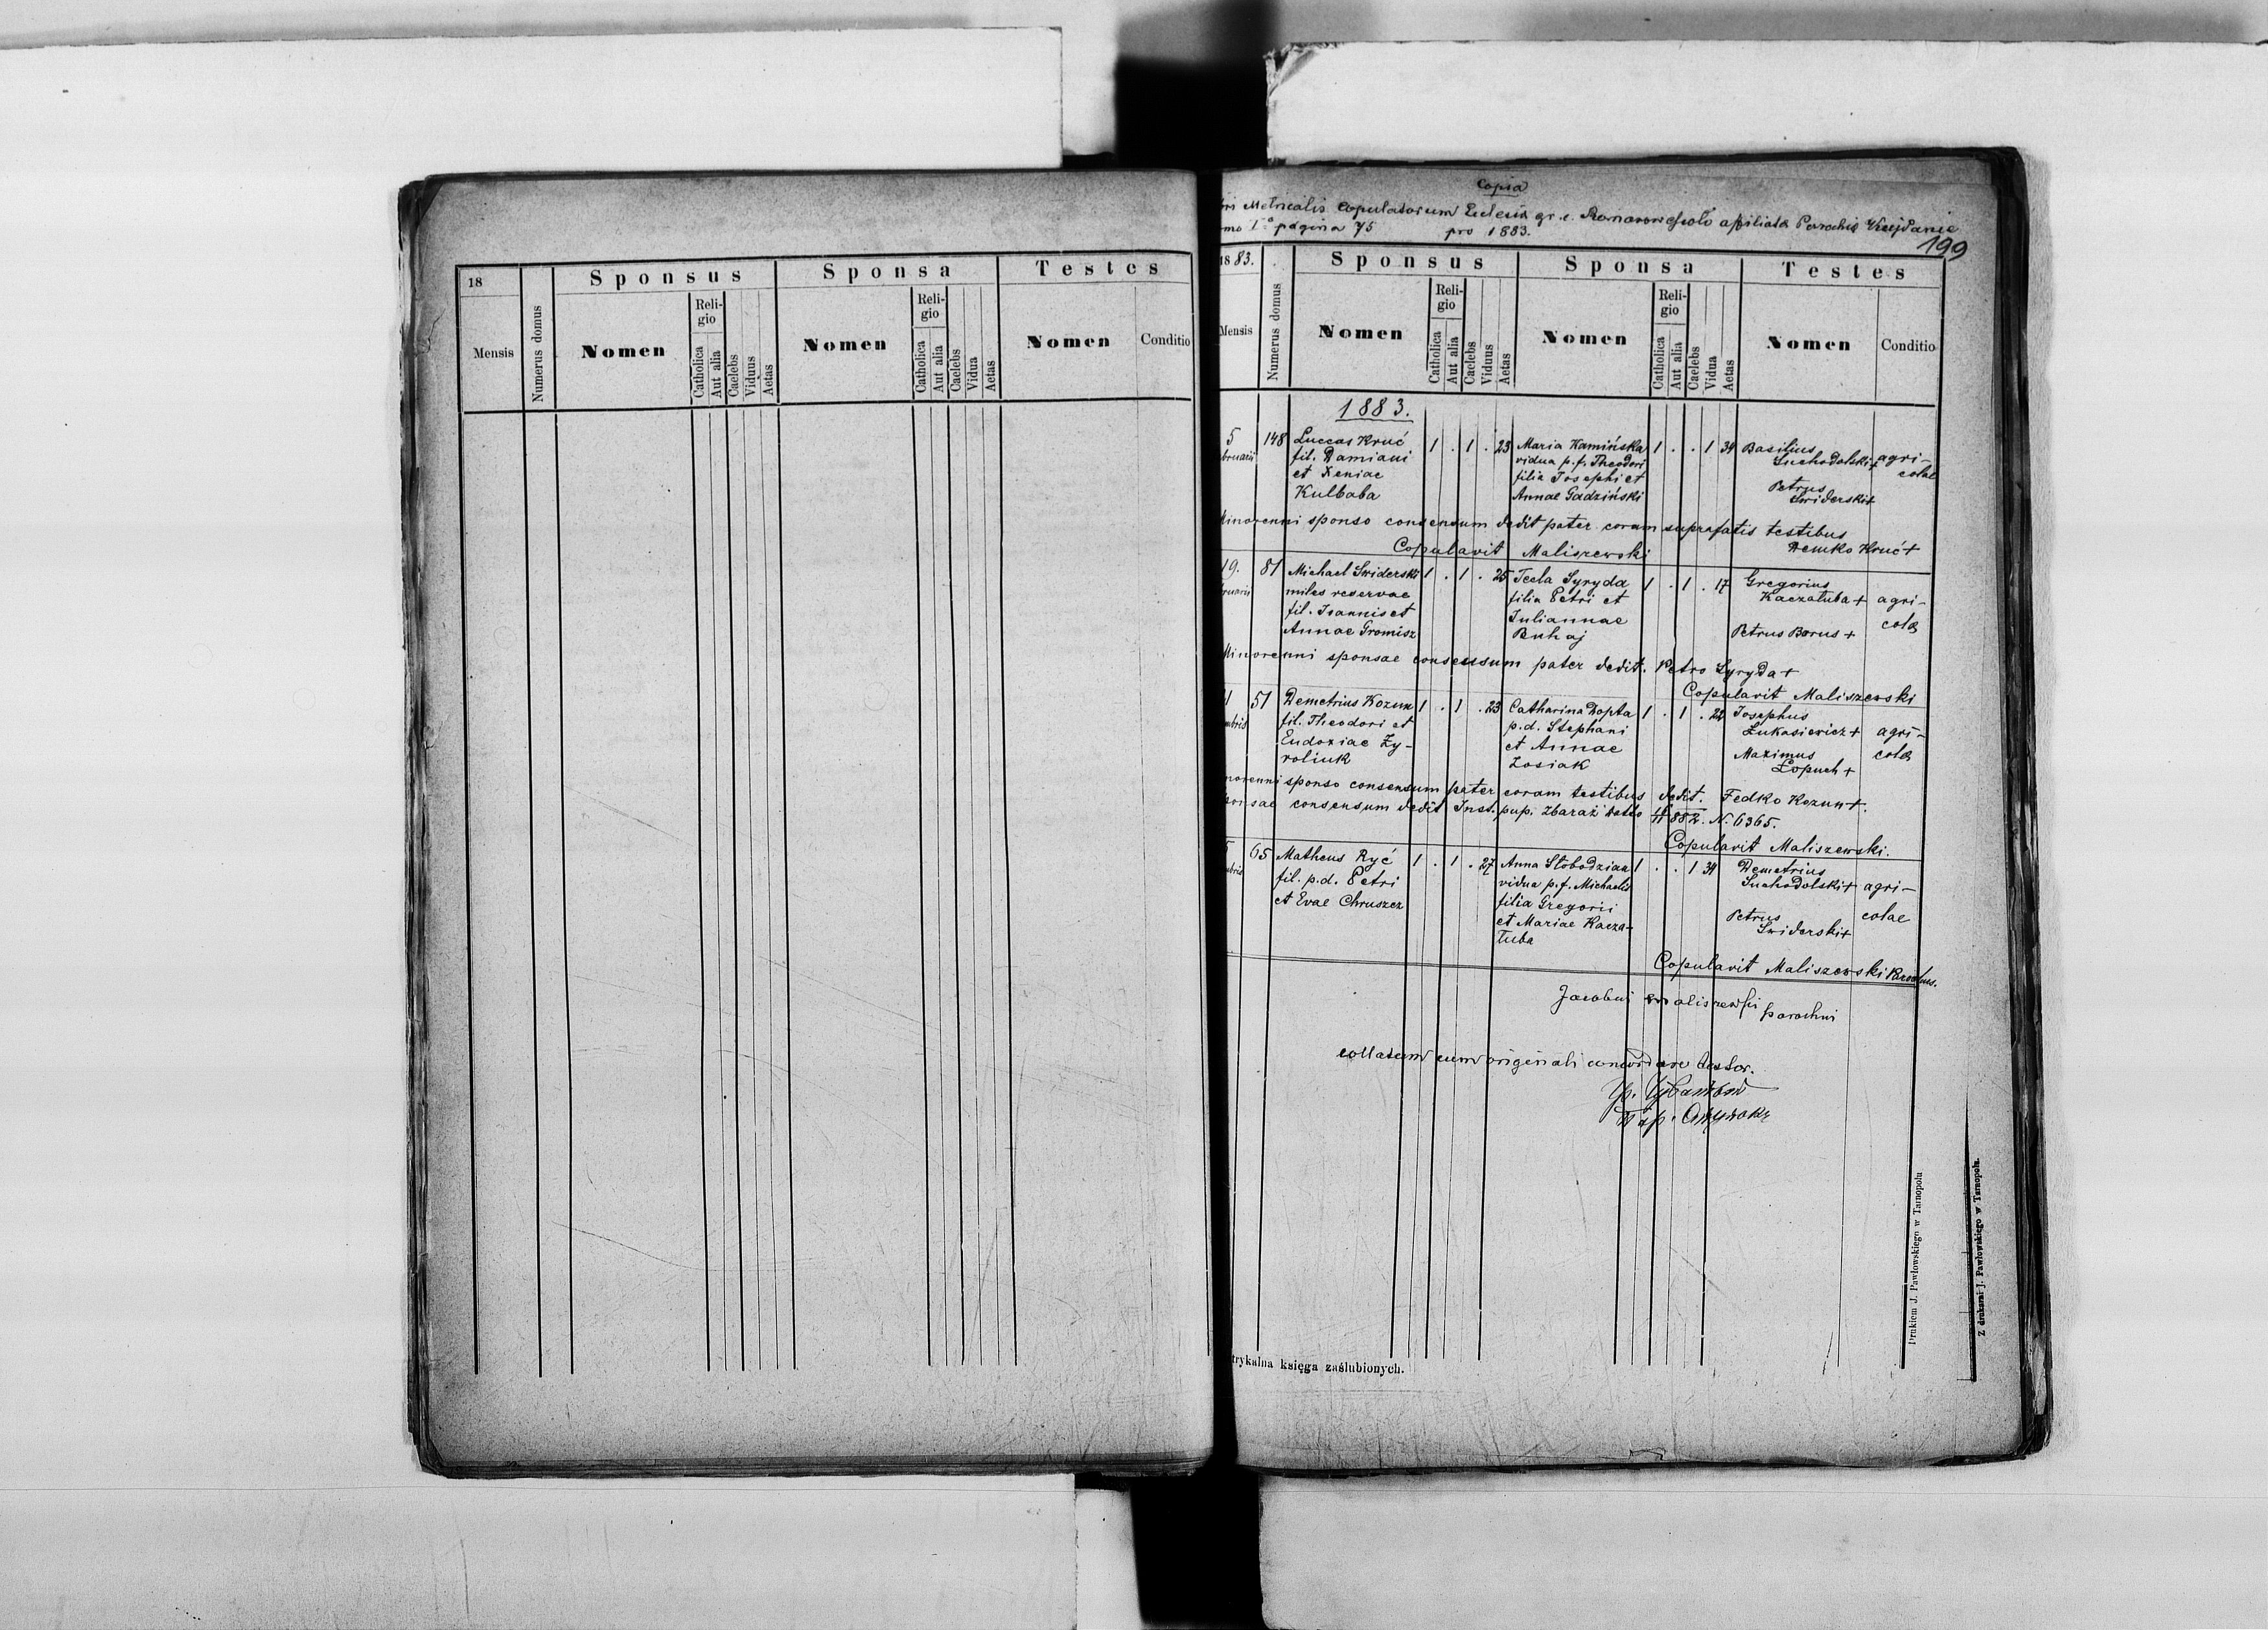 18
Sponsus
Sponsa
Testes
Mensis
Numerus domus
Nomen
Religio
Catholica
Aut alia
Caelebs
Viduus
Aetas
Nomen
Religio
Catholica
Aut alia
Caelebs
Vidua
Aetas
Nomen
Conditio
Copia
Metricalis Copulatorum Ecclesiæ gr. c. affiliata Parochiæ
pagina 75 pro 1883.
199
1883.
Sponsus
Sponsa
Testes
Mensis
Numerus domus
Nomen
Religio
Catholica
Aut alia
Caelebs
Viduus
Aetas
Nomen
Religio
Catholica
Aut alia
Caelebs
Vidua
Aetas
Nomen
Conditio
1883.
5 148 Luccas Kruć 1 . 1 . 23 Maria Kamińska 1 . . 1 34 Basilius
bruarii fil. Damiani vidua p. f. Theodori Suchodolski+ agri-
et Xeniae filia Josephi et Petrus colae
Kulbaba Annae Gadziński Swiderski+
Minorenni sponso consensum dedit pater coram suprafatis testibus
Demko Kruć+
Copulavit Maliszewski
19. 81 Michael Swiderski 1 . 1 . 25 Tecla Syryda 1 . 1 . 17 Gregorius
ruarii miles reservae filia Petri et Kaczałuba + agri-
fil. Joannis et Juliannae colæ
Annae Gromisz Buhaj Petrus Borus +
Minorenni sponsae consessum pater dedit. Petro Syryda+
Copulavit Maliszewski
51 Demetrius Kozun 1 . 1 . 23 Catharina Dopta 1 . 1 . 22 Josephus
mbris fil. Theodori et p. d. Stephani Łukasiewicz+ agri-
Eudoxiae Zy- et Annae Maximus colæ
roliuk Zosiak Łopuch+
norenni sponso consensum pater coram testibus dedit. Fedko Kozun+.
sponsae consensum dedit Inst. pup. Zbaraż 882. N. 6365.
Copulavit Maliszewski.
65 Matheus Ryć 1 . 1 . 27 Anna Słobodzian 1 . . 1 34 Demetrius
mbris fil. p. d. Petri vidua p. f. Michaelis Suchodolski+ agri-
et Evae Chruszcz filia Gregorii Petrus colae
et Mariae Kacza- Swiderski+
łuba
Copulavit Maliszewski
Jacobus Maliszewski
parochus
collatum cum originali concordare testor.
trykalna księga zaślubionych.
Drukiem J. Pawłowskiego w Tarnopolu
Z drukarni J. Pawłowskiego w Tarnopolu.